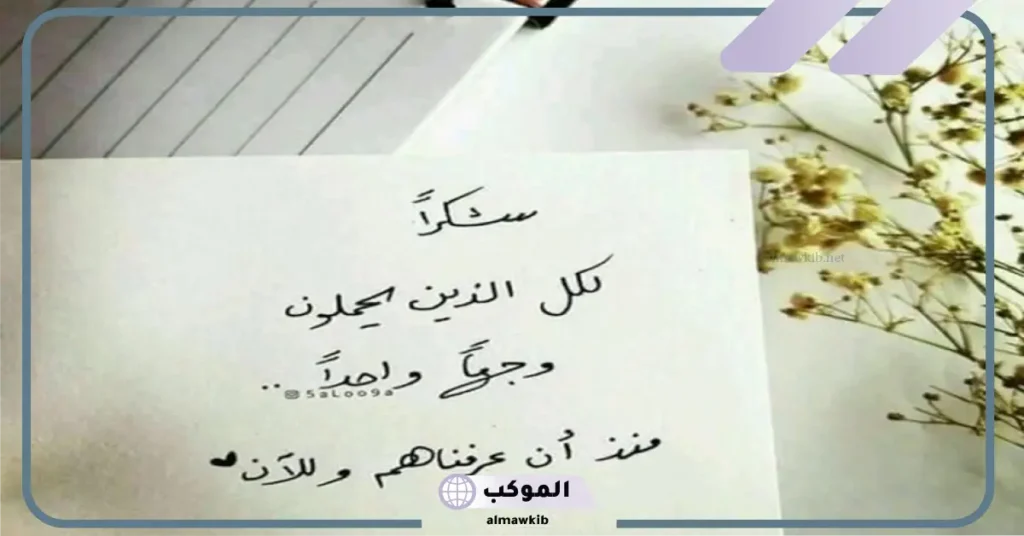 شكراً
لكل الذين يحملون
وجهاً واحداً ..
5aLoo9a
منذ أن عرفناهم وللآن
الموكب
almawkib